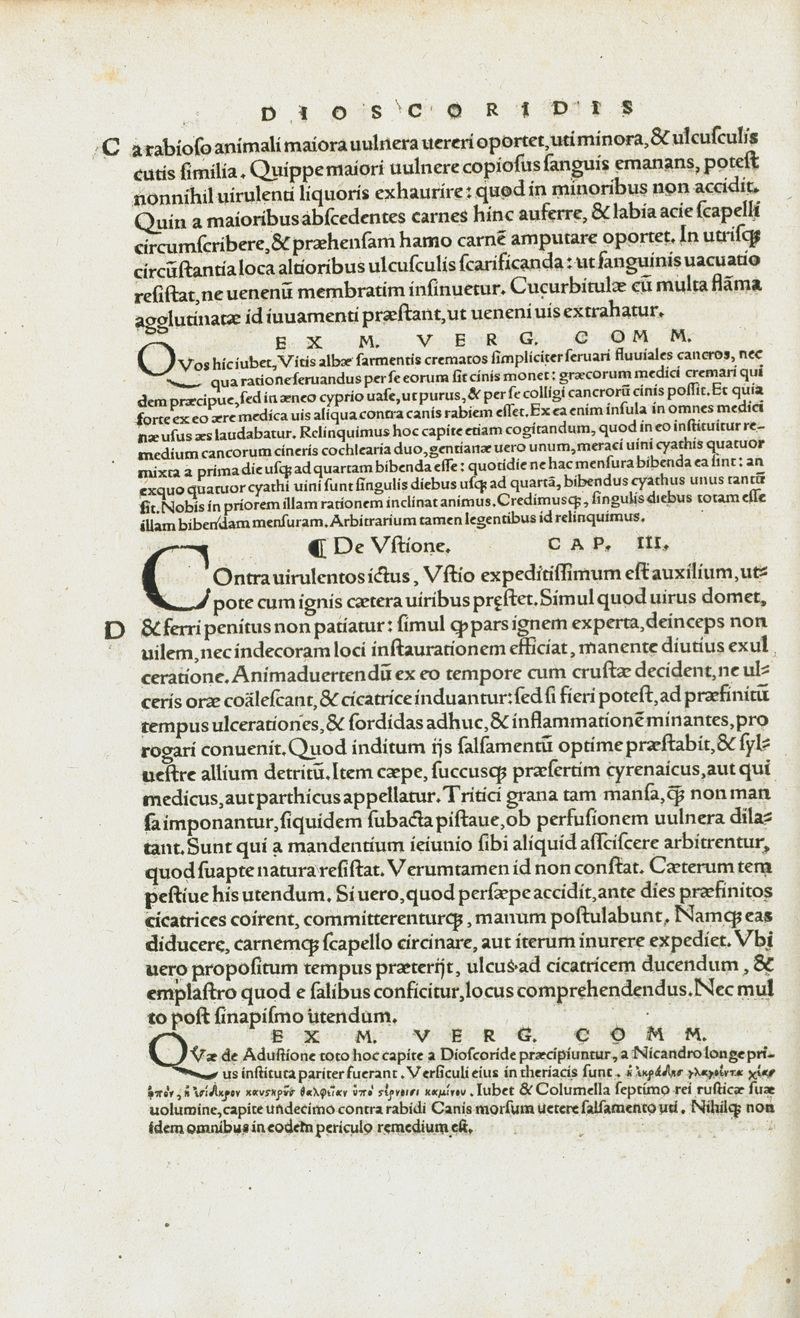 D I O S C O R I D I S
C a rabioſo animali maiora uulnera uereri oportet, uti minora, & ulcuſculis
cutis ſimilia. Quippe maiori uulnere copioſus ſanguis emanans, poteſt
nonnihil uirulenti liquoris exhaurire: quod in minoribus non accidit.
Quin a maioribus abſcedentes carnes hinc auferre, & labia acie ſcapelli
circumſcribere, & præhenſam hamo carnē amputare oportet. In utriſq;
circūſtantia loca altioribus ulcuſculis ſcarificanda: ut ſanguinis uacuatio
reſiſtat, ne uenenū membratim inſinuetur. Cucurbitulæ cū multa flāma
agglutinatæ id iuuamenti præſtant, ut ueneni uis extrahatur.
E X M. V E R G. C O M M.
QVos hic iubet, Vitis albæ ſarmentis crematos ſimpliciter ſeruari fluuiales cancros, nec
qua ratione ſeruandus per ſe eorum ſit cinis monet: græcorum medici cremari qui
dem præcipue, ſed in æneo cyprio uaſe, ut purus, & per ſe colligi cancrorū cinis poſſit. Et quia
forte ex eo ære medica uis aliqua contra canis rabiem eſſet. Ex ea enim inſula in omnes medici
næ uſus æs laudabatur. Relinquimus hoc capite etiam cogitandum, quod in eo inſtituitur re-
medium cancorum cineris cochlearia duo, gentianæ uero unum, meraci uini cyathis quatuor
mixta a prima die uſq; ad quartam bibenda eſſe: quotidie ne hac menſura bibenda ea ſint: an
exquo quatuor cyathi uini ſunt ſingulis diebus uſq; ad quartā, bibendus cyathus unus tantū
ſit. Nobis in priorem illam rationem inclinat animus. Credimusq;, ſingulis diebus totam eſſe
illam bibendam menſuram. Arbitrarium tamen legentibus id relinquimus.
¶ De Vſtione. C A P. III.
COntra uirulentos ictus, Vſtio expeditiſſimum eſt auxilium, ut⸗
pote cum ignis cætera uiribus pręſtet. Simul quod uirus domet,
D & ferri penitus non patiatur: ſimul ꝙ pars ignem experta, deinceps non
uilem, nec indecoram loci inſtaurationem efficiat, manente diutius exul
ceratione. Animaduertendū ex eo tempore cum cruſtæ decident, ne ul⸗
ceris oræ coäleſcant, & cicatrice induantur: ſed ſi fieri poteſt, ad præfinitū
tempus ulcerationes, & ſordidas adhuc, & inflammationē minantes, pro
rogari conuenit. Quod inditum ijs ſalſamentū optime præſtabit, & ſyl⸗
ueſtre allium detritū. Item cæpe, ſuccusq; præſertim cyrenaicus, aut qui
medicus, aut parthicus appellatur. Tritici grana tam manſa, q̄; non man
ſa imponantur, ſiquidem ſubacta piſtaue, ob perfuſionem uulnera dila⸗
tant. Sunt qui a mandentium ieiunio ſibi aliquid aſſciſcere arbitrentur,
quod ſuapte natura reſiſtat. Verumtamen id non conſtat. Cæterum tem
peſtiue his utendum. Si uero, quod perſæpe accidit, ante dies præfinitos
cicatrices coirent, committerenturq;, manum poſtulabunt. Namq; eas
diducere, carnemq; ſcapello circinare, aut iterum inurere expediet. Vbi
uero propoſitum tempus præterijt, ulcus ad cicatricem ducendum, &
emplaſtro quod e ſalibus conficitur, locus comprehendendus. Nec mul
to poſt ſinapiſmo utendum.
E X M. V E R G. C O M M.
QVæ de Aduſtione toto hoc capite a Dioſcoride præcipiuntur, a Nicandro longe pri-
us inſtituta pariter fuerant. Verſiculi eius in theriacis ſunt.
Iubet & Columella ſeptimo rei ruſticæ ſuæ
uolumine, capite undecimo contra rabidi Canis morſum uetere ſalſamento uti. Nihilq; non
idem omnibus in eodem periculo remedium eſt.